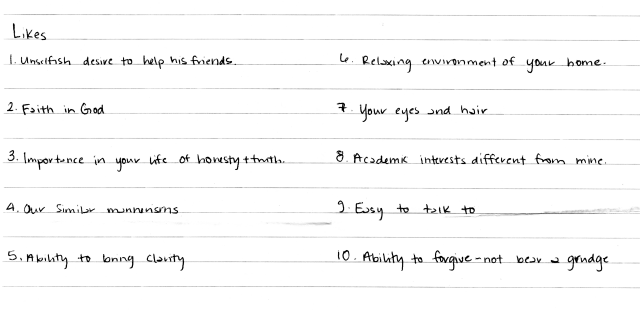 Likes
1. Unselfish desire to help his friends.
2. Faith in God
3. Importance in your life of honesty + truth.
4. Our similar mannerisms
5. Ability to bring clarity
6. Relaxing environment of your home.
7. Your eyes and hair
8. Academic interests different from mine.
9. Easy to talk to
10. Ability to forgive - not bear a grudge